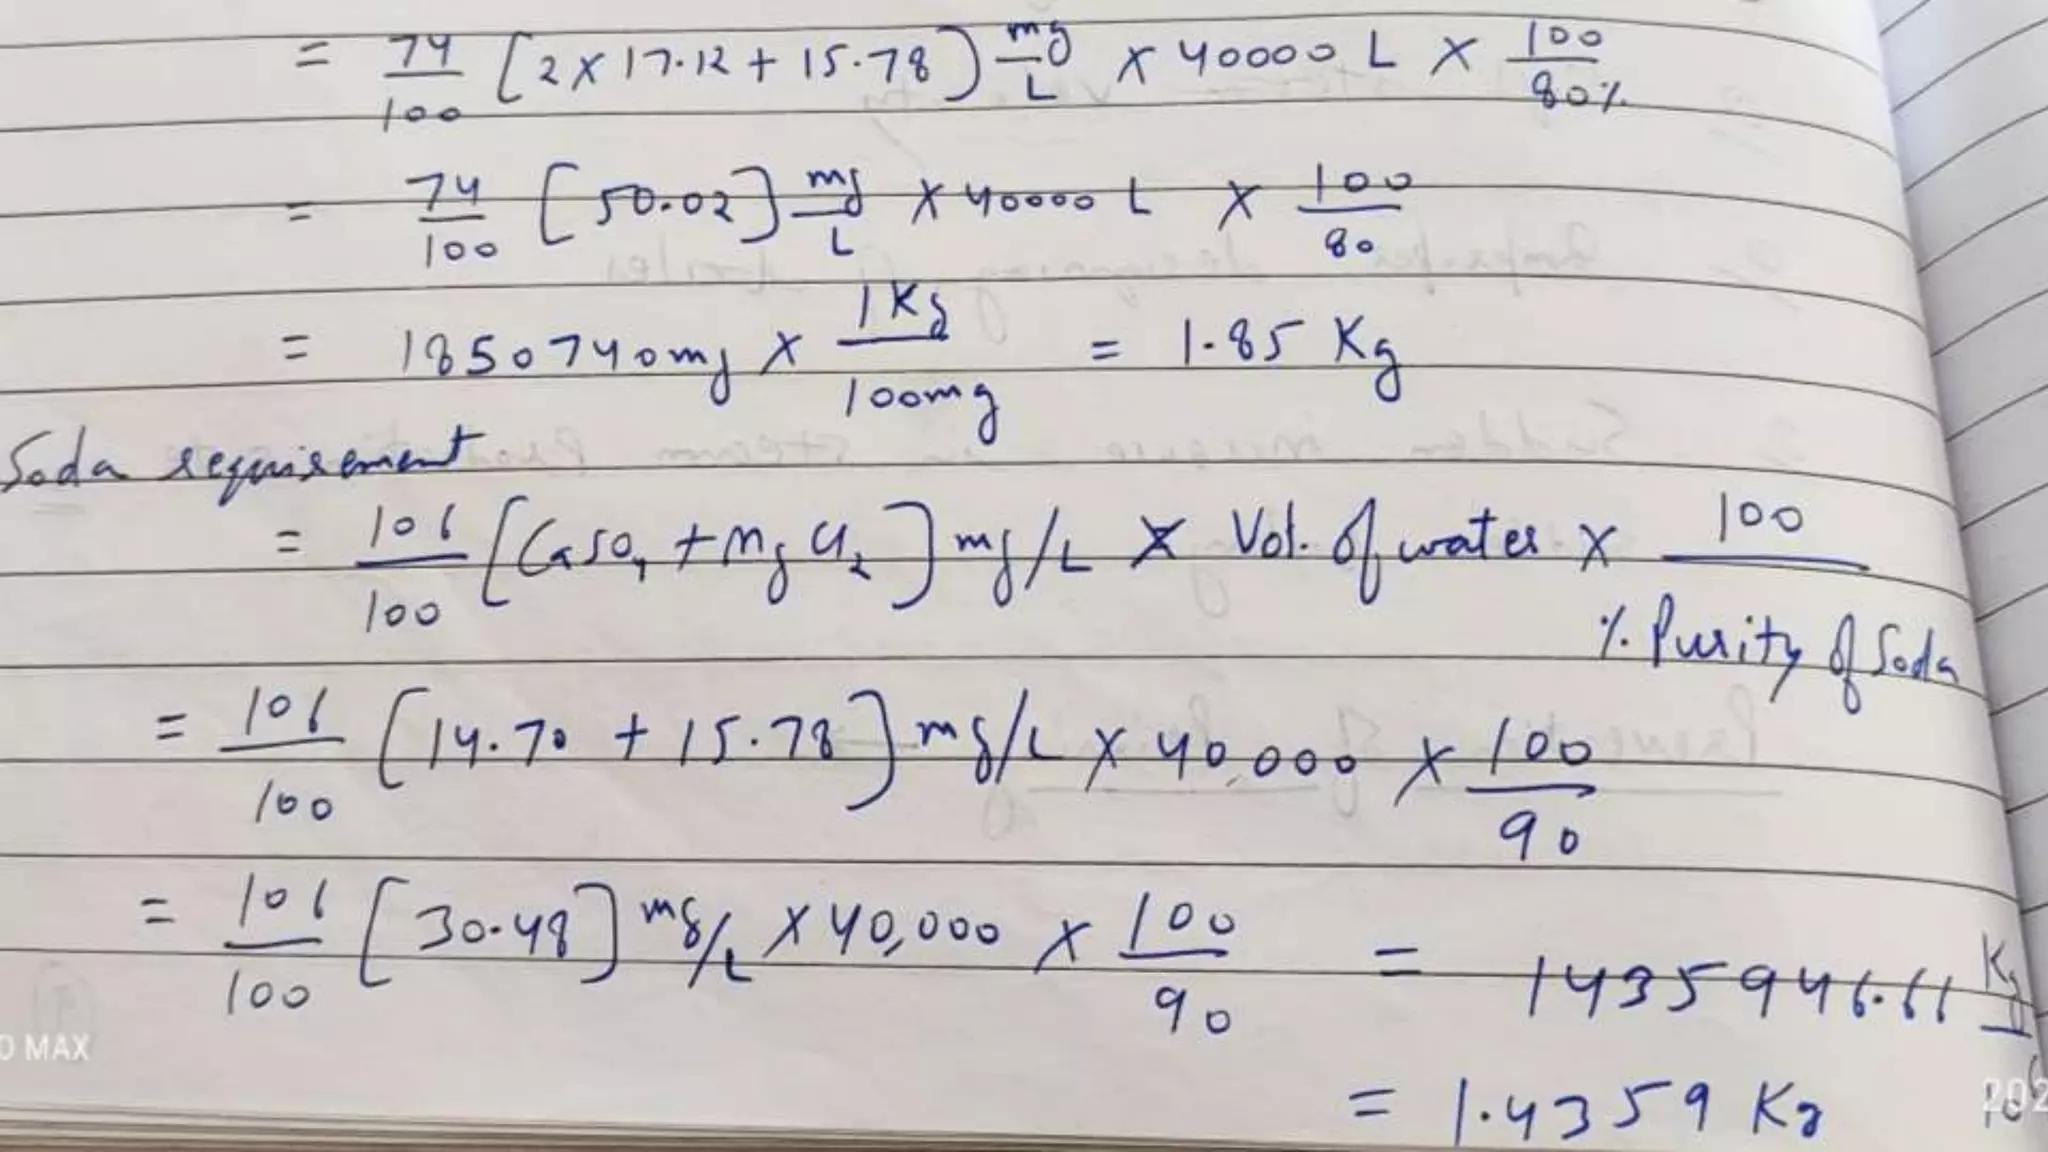 = 74/100 [2 x 17.12 + 15.78) mg/L x 40000 L x 100/80%
= 74/100 [50.02] mg/L x 40000 L x 100/80
= 1850740mg x 1Kg/100mg = 1.85 Kg
Soda requirement
= 106/100 [CaSO4 + MgCl2] mg/L x Vol. of water x 100/% Purity of Soda
= 106/100 [14.70 + 15.78] mg/L x 40,000 x 100/90
= 106/100 [30.48] mg/L x 40,000 x 100/90 = 1435946.66 Kg
= 1.4359 Kg
MAX